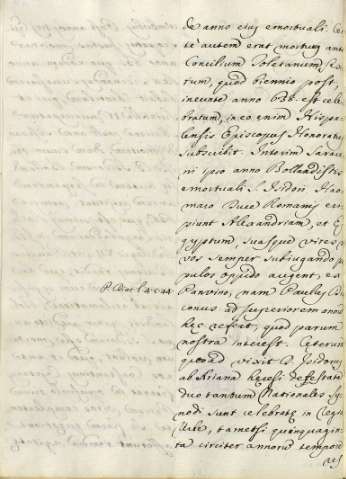 de anno ejus emortuali. Cer
te autem erat mortuus ante
Concilium Toletanum Sex
tum, quod biennio post,
ineunte anno 638. est cele
bratum, in eo enim Hispa
lensis Episcopus Honoratus
Subscribit. Interim Sarace
ni ipso anno Bollandistis
emortuali S. Isidori Hao
maro Duce Romanis eri
piunt Alexandriam, et E
gyptum, suasque vires no
vos semper subiugando po
pulos oppido augent, ex
P. Diac. l. 4. c. 44
Panvino, nam Paulus Dia
conus ad superiorem annum
hæc refert, quod parum
nostra interest. Cæterum
quoad vixit S. Isidorus
ab Ariana hæresi detestata
duo tantum Nationales Sy
nodi sunt celebratæ in Regia
Urbe, tametsi quinquagin
ta circiter annorum tempore